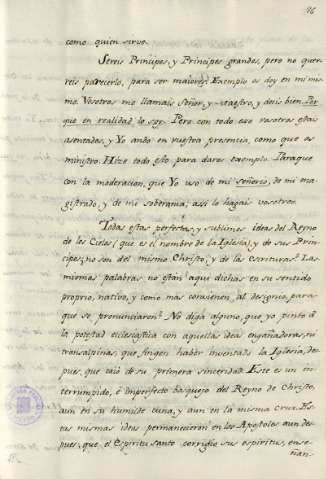 96
como quien sirve.
Sereis Principes, y Principes grandes, pero no que
reis parecerlo, para ser maiores. Exemplo os doy en mi mis
mo. Vosotros me llamais Señor, y Maestro, y decis bien. Por
que en realidad lo soy. Pero con todo eso vosotros estais
asentados, y Yo ando en vuestra presencia, como que os
ministro. Hize todo esto para daros exemplo. Paraque
con la moderacion, que Yo uso de mi señorio, de mi ma
gistrado, y de mi soberania; assi lo hagais vosotros.
Todas estas perfectas, y sublimes ideas del Reyno
de los Cielos (que es el nombre de la Iglesia), y de sus Prin
cipes; no son del mismo Christo, y de las escrituras? Las
mismas palabras no están aqui dichas en su sentido
proprio, nativo, y como mas convienen, al designio, para
que se pronunciaron? No diga alguno, que yo pinto á
la potestad eclesiastica con aquellas ideas engañadoras,
transalpinas, que fingen haber inventado la Iglesia, des
pues, que caió de su primera sinceridad. Este es un in
terrumpido, é imperfecto bosquejo del Reyno de Christo,
aun en su humilde cuna, y aun en la misma cruz. Es
tas mismas ideas permanecieron en los Apostoles aun des
pues, que el Espiritu Santo corrigió sus espiritus, ense
ñan-